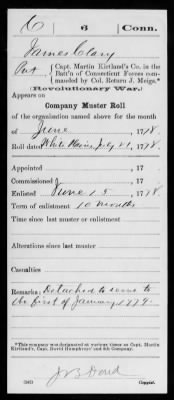 C | 6 | Conn.
James Clary
Pvt, Capt. Martin Kirtland's Co. in the
Batt'n of Connecticut Forces com-
manded by Col. Return J. Meigs.*
(Revolutionary War.)
Appears on
Company Muster Roll
of the organization named above for the month
of June, 1778.
Roll dated White Plains, July 21, 1778.
Appointed, 17
Commissioned, 17
Enlisted June 15, 1778.
Term of enlistment 10 months
Time since last muster or enlistment
Alterations since last muster
Casualties
Remarks: Detached to serve to
the first of January 1779.
*This company was designated at various times as Capt. Martin
Kirtland's, Capt. David Humphreys' and 6th Company.
Copyist.